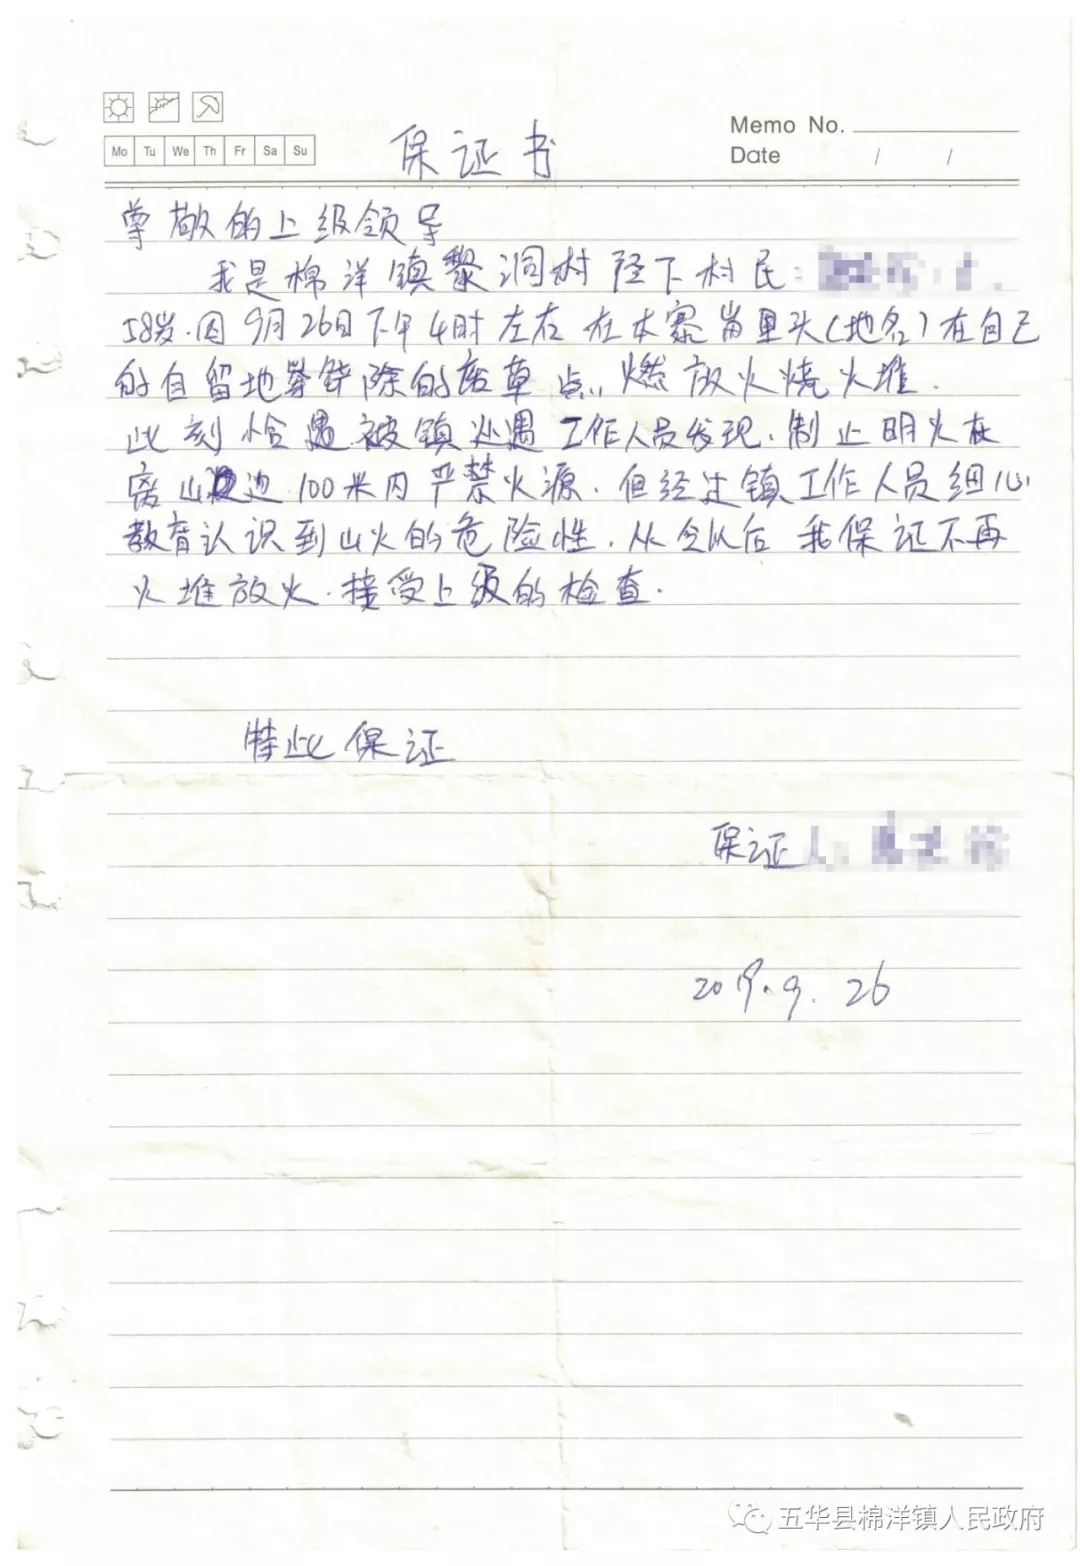 Memo No.
Mo Tu We Th Fr Sa Su
Date / /
保证书
尊敬的上级领导
我是棉洋镇黎洞村径下村民:
58岁.因9月26日下午4时左右在本寨岗里头(地名)在自己
的自留地 除的废草点燃放火烧火堆.
此刻恰遇被镇处遇工作人员发现.制止明火在
离山边100米内严禁火源.但经过镇工作人员细心
教育认识到山火的危险性.从今以后我保证不再
火堆放火.接受上级的检查.
特此保证
保证人:
2019.9.26
五华县棉洋镇人民政府